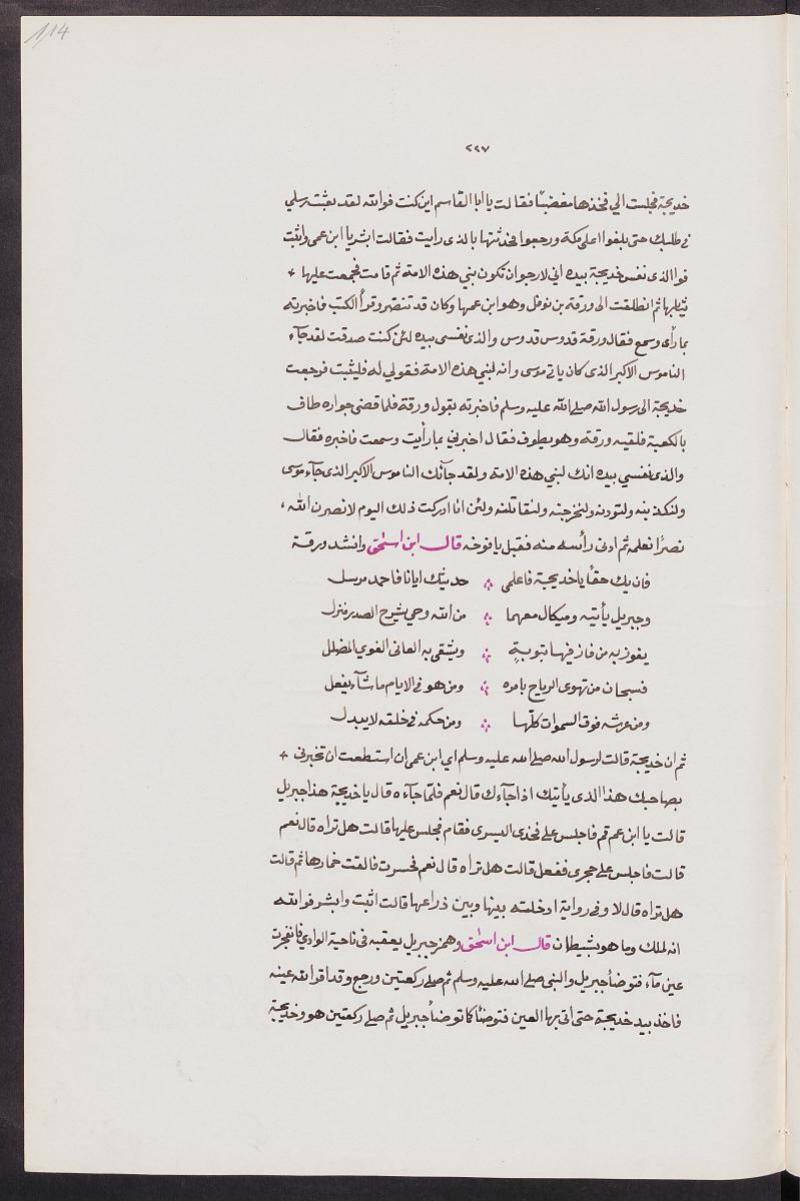 114
٢٢٧
خديجة فجلست الي فخذها مضيفا فقالت يا ابا القاسم اين كنت فوالله لقد بعثت رسلي
في طلبك حتى بلغوا اعلى مكة ورجعوا فحدثتها بالذى رايت فقالت ابشر يا ابن عمى واثبت
فوالذى نفس خديجة بيده اني لارجو ان تكون بني هذه الامة ثم قامت فجمعت عليها
ثيابها ثم انطلقت الى ورقة بن نوفل وهو ابن عمها وكان قد تنصر وقرأ الكتب فاخبرته
بما رأى وسمع فقال ورقة قدوس قدوس والذى نفسى بيده لئن كنت صدقت لقد جآء
الناموس الاكبر الذى كان يأتى موسى وانه لنبي هذه الامة فقولي له فليثبت فرجعت
خديجة الى رسول الله صلى الله عليه وسلم فاخبرته بقول ورقة فلما قضى جواره طاف
بالكعبة فلقيه ورقة وهو يطوف فقال اخبرني بما رأيت وسمعت فاخبره فقال
والذى نفسي بيده انك لنبي هذه الامة ولقد جآئك الناموس الاكبر الذى جآء موسى
ولتكذبنه ولتوذنه ولتخرجنه ولتقاتلنه ولئن انا ادركت ذلك اليوم لانصرن الله
نصرًا نعلمه ثم ادنى رأسه منه فقبل يافوخه قال ابن اسحٰق وانشد ورقة
فان يك حقًا يا خديجة فاعلمي حديثك ايانا فاحمد مرسل
وجبريل يأتيه وميكال معهما من الله وحي يشرح الصدر منزل
يفوز به من فاز فيها بتوبةٍ ويشقى به العانى الغوي المضلل
فسبحان من تهوى الرياح بامره ومن هو فى الايام ما شآء يفعل
ومن عرشه فوق السموات كلّها ومن حكمه في خلقه لا يبدل
ثم ان خديجة قالت لرسول الله صلى الله عليه وسلم اي ابن عمى ان استطعت ان تخبرنى
بصاحبك هذا الذى يأتيك اذا جآءك قال نعم فلمّا جآءه قال يا خديجة هذا جبريل
قالت يا ابن عم قم فاجلس على فخذى اليسرى فقام فجلس عليها قالت هل تراه قال نعم
قالت فاجلس على حجرى ففعل قالت هل تراه قال نعم فحسرت فالقت خمارها ثم قالت
هل تراه قال لا وفى رواية ادخلته بينها وبين ذراعها قالت اثبت وابشر فوالله
انه لملك وما هو بشيطان قال ابن اسحٰق وهمز جبريل بعقبه فى ناحية الوادي فانفجرت
عين مآء فتوضأ جبريل والنبى صلى الله عليه وسلم ثم صلى ركعتين ورجع وقد اقر الله عينه
فاخذ بيد خديجة حتى اتى بها العين فتوضأ كما توضأ جبريل ثم صلى ركعتين هو وخديجة